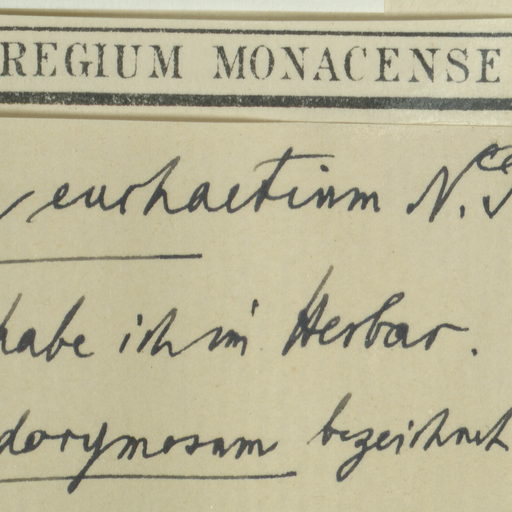 REGIUM MONACENSE
eurhaetium N.
habe ich im Herbar.
dorymosum bezeichnet